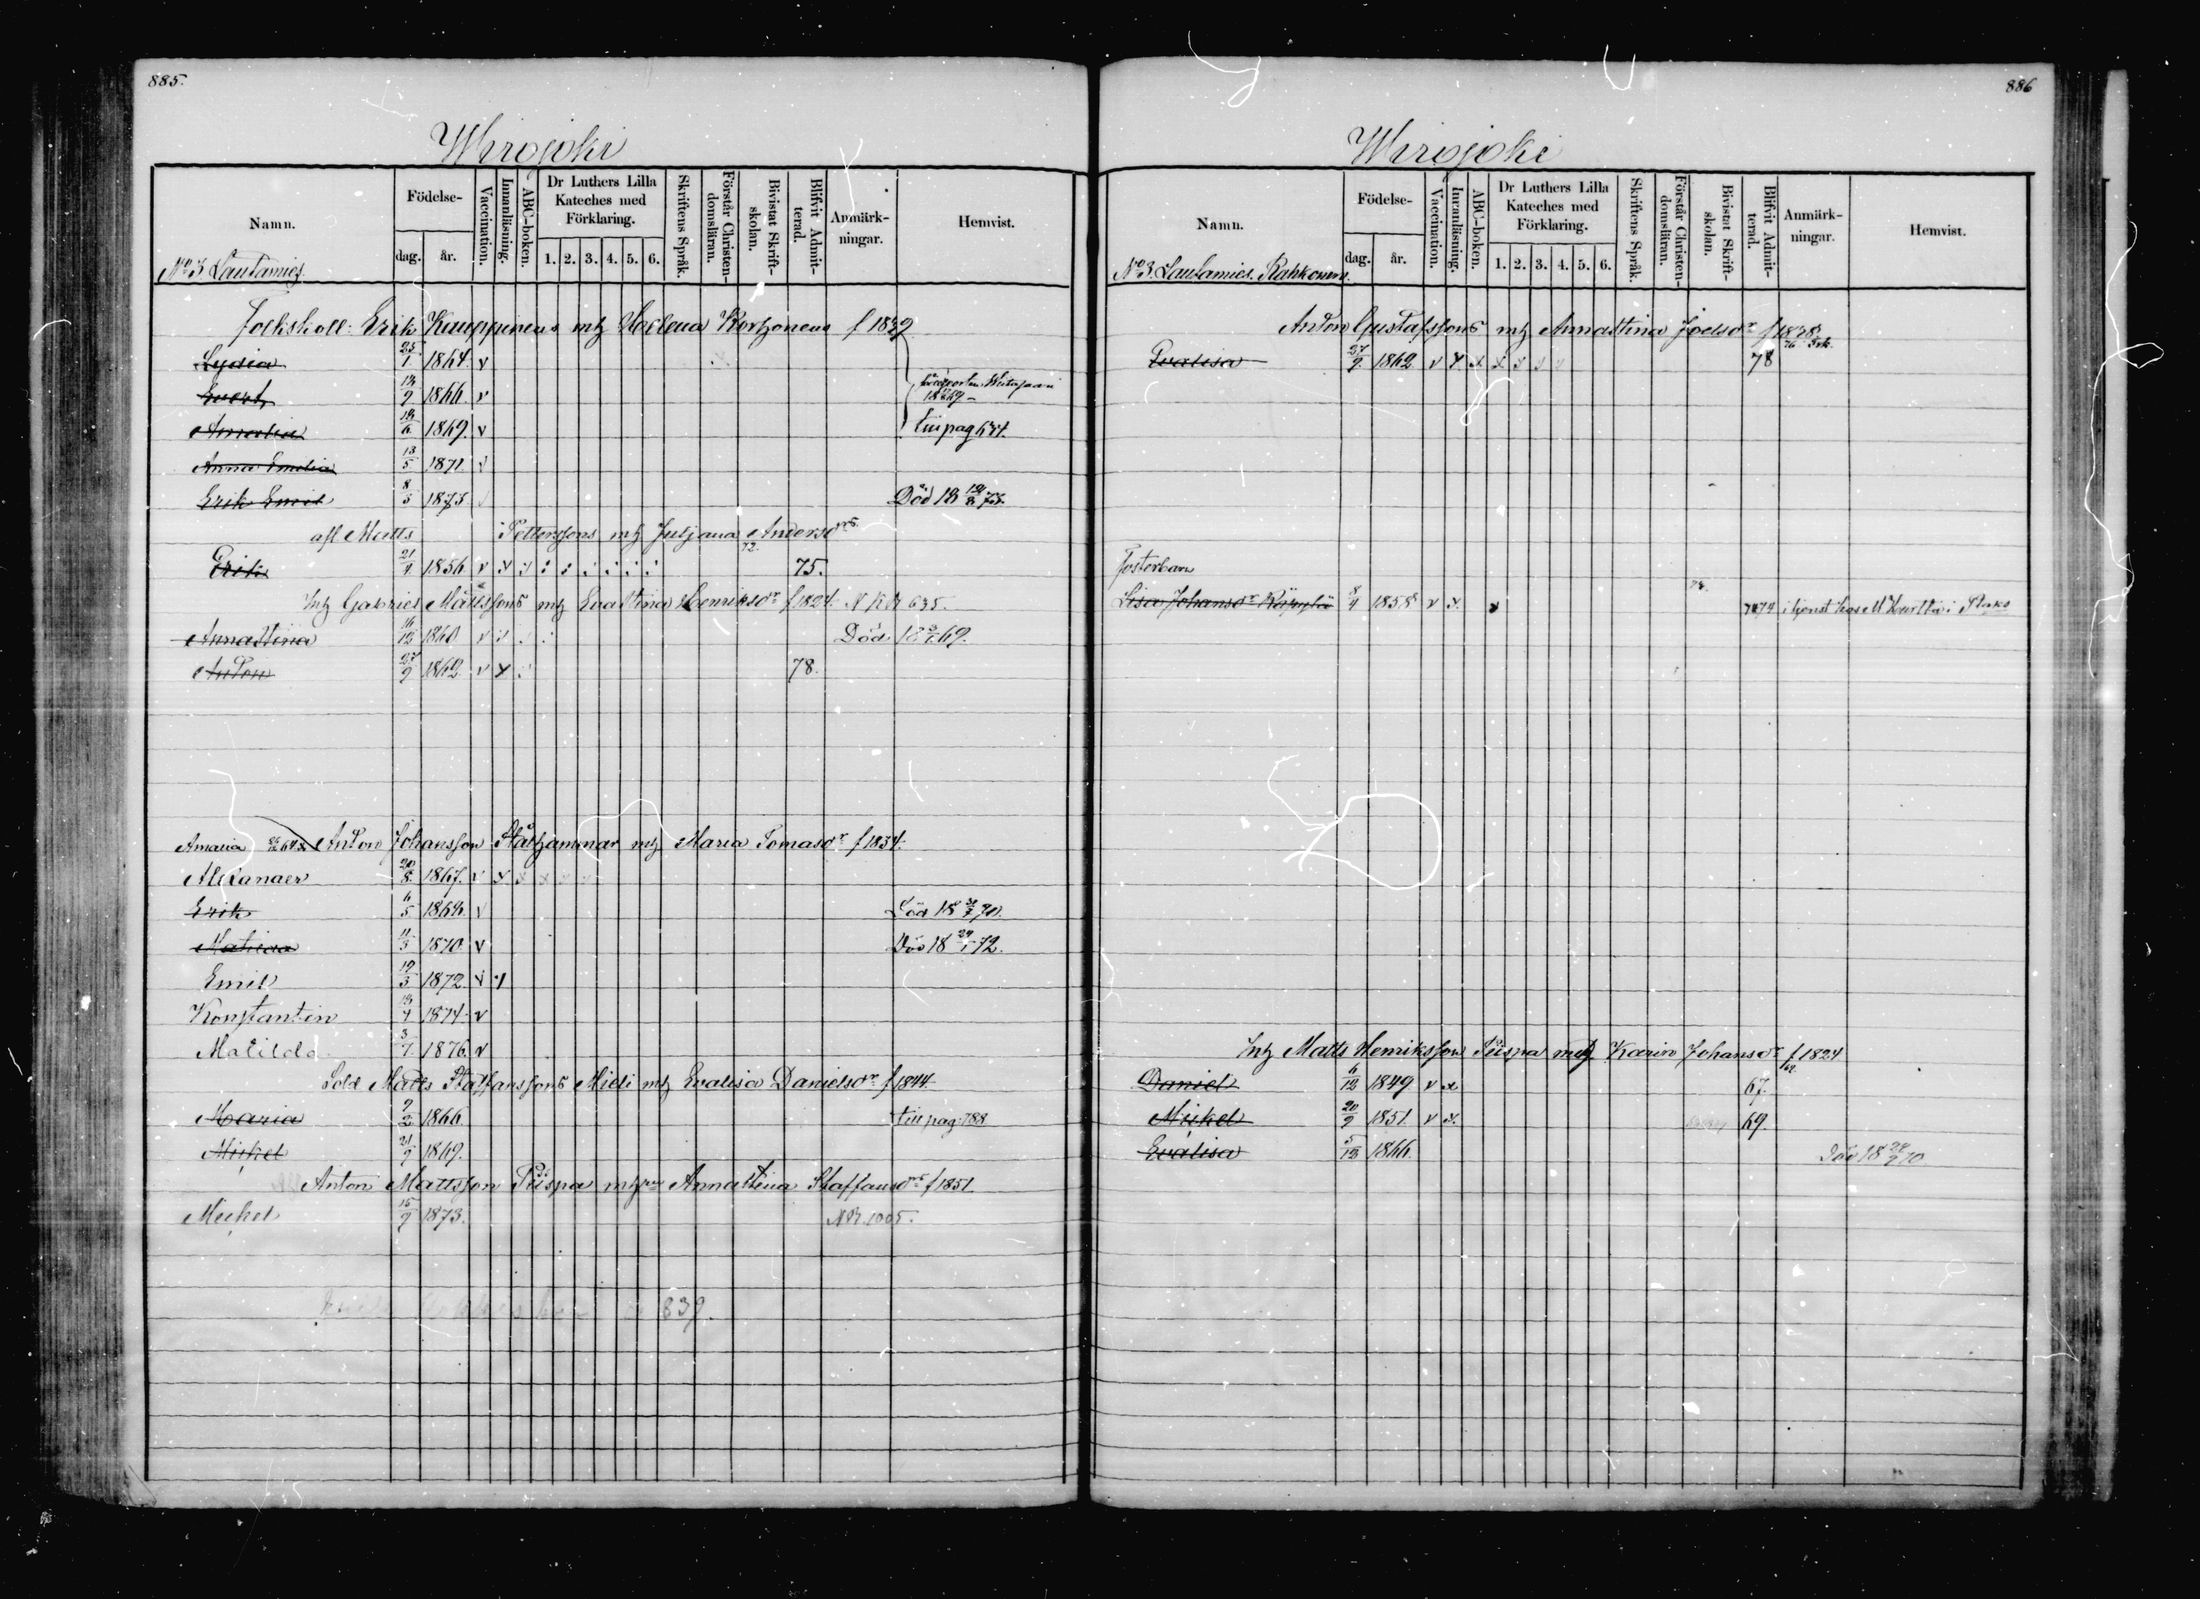 885.
Wirojoki
Namn. Födelse- dag. år. Vaccination. Innanläsning. ABC-boken. Dr Luthers Lilla Kateches med Förklaring. 1. 2. 3. 4. 5. 6. Skriftens Språk. Förstår Christendomsläran. Bivistat Skriftskolan. Blifvit Admitterad. Anmärkningar. Hemvist.
No 3 Lautamies
Erik Kauppinens mh Helena Korhonens f 1839
Lydia 25/1 1864. v
Evert 9 1866. v
Amalia 6 1869. v Tili pag 674.
Anna Emilia 13/5 1871 v
Erik Emil 8/3 1873 Död 18
afl Matts Petterssons mh Juljana Andersdrs
72.
Erik 21/4 1856 v 75.
Inh Gabriel Mattssons mh Evastina Henriksdr f 1824. N KB 635.
Annastina 16/12 1860 v Död 18 69.
Anton 27/9 1862 v x 78.
Amalia Anton Johansson Stålhammar mh Maria Tomasdr f 1834.
Alexander 20/8 1867. v x x x
Erik 6/5 1868. v Död 18 70.
Matilda 11/3 1870 v Död 18 24/1 72.
Emil 19/3 1872. v
Konstantin 4 1874. v
Matilda 3/7 1876. v
Sold Matts Staffanssons Mieli mh Evalisa Danielsdr f 1844
Maria 9/2 1866. till pag. 788
Mickel 21/9 1869.
Anton Mattsson Piispa mh Annastina Staffansdrs f 1851
Mickel 15/9 1873. N B. 1005.
839.
886
Wirojoki
Namn. Födelse- dag. år. Vaccination. Innanläsning. ABC-boken. Dr Luthers Lilla Kateches med Förklaring. 1. 2. 3. 4. 5. 6. Skriftens Språk. Förstår Christendomsläran. Bivistat Skriftskolan. Blifvit Admitterad. Anmärkningar. Hemvist.
No 3. Lautamies. Rahkonen.
Anton Gustafssons mh Annastina Joelsdr f 1838
Evalisa 27/9 1862 v x x x x 78
Fosterbarn
Lisa Johansdr 8/4 1858 v x. x 74 i tjenst hos M Hurtta i
Inh Matts Henriksson Piispa mh Karin Johansdr f 1824
Daniel 6/12 1849 v x 67.
Mickel 20/9 1851. v x. 69.
Evalisa 5/12 1866. Död 18 70